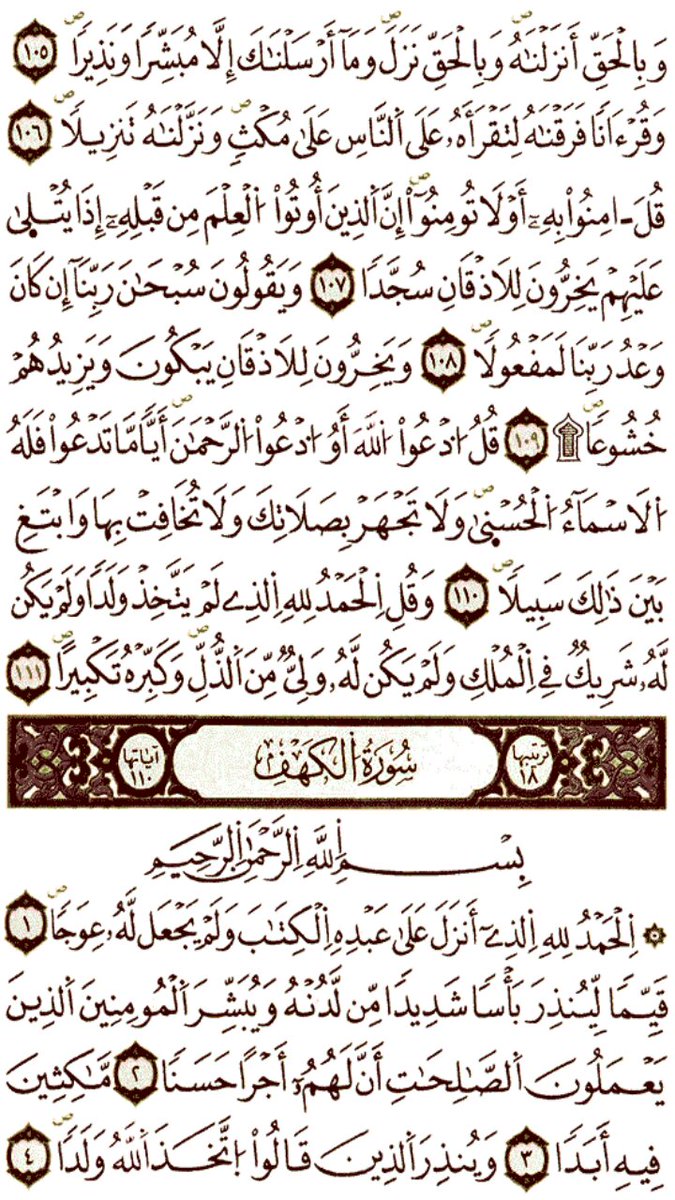 وَبِالْحَقِّ أَنزَلْنَٰهُ وَبِالْحَقِّ نَزَلَۖ وَمَآ أَرْسَلْنَٰكَ إِلَّا مُبَشِّرًا وَنَذِيرًاۖ ١٠٥
وَقُرْءَانًا فَرَقْنَٰهُ لِتَقْرَأَهُۥ عَلَى اَ۬لنَّاسِ عَلَىٰ مُكْثٍۖ وَنَزَّلْنَٰهُ تَنزِيلًاۖ ١٠٦
قُلَ اٰمِنُوا۟ بِهِۦٓ أَوْ لَا تُومِنُوٓا۟ۖ إِنَّ اَ۬لذِينَ أُوتُوا۟ اُ۬لْعِلْمَ مِن قَبْلِهِۦٓ إِذَا يُتْل۪ىٰ
عَلَيْهِمْ يَخِرُّونَ لِلَاذْقَانِ سُجَّدًا ١٠٧ وَيَقُولُونَ سُبْحَٰنَ رَبِّنَآ إِن كَانَ
وَعْدُ رَبِّنَا لَمَفْعُولًاۖ ١٠٨ وَيَخِرُّونَ لِلَاذْقَانِ يَبْكُونَ وَيَزِيدُهُمْ
خُشُوعًاۖ ۩ ١٠٩ قُلُ اُ۟دْعُوا۟ اُ۬للَّهَ أَوُ اُ۟دْعُوا۟ اُ۬لرَّحْمَٰنَۖ أَيًّا مَّا تَدْعُوا۟ فَلَهُ
اُ۬لَاسْمَآءُ اُ۬لْحُسْن۪ىٰۖ وَلَا تَجْهَرْ بِصَلَاتِكَ وَلَا تُخَافِتْ بِهَا وَابْتَغِ
بَيْنَ ذَٰلِكَ سَبِيلًاۖ ١١٠ وَقُلِ اِ۬لْحَمْدُ لِلهِ اِ۬لذِے لَمْ يَتَّخِذْ وَلَدًا وَلَمْ يَكُن
لَّهُۥ شَرِيكٌ فِے اِ۬لْمُلْكِ وَلَمْ يَكُن لَّهُۥ وَلِيٌّ مِّنَ اَ۬لذُّلِّۖ وَكَبِّرْهُ تَكْبِيرًاۖ ١١١
ترتيبها ١٨ سُورَةُ اُ۬لْكَهْفِ آياتها ١١٠
بِسْمِ اِ۬للَّهِ اِ۬لرَّحْمَٰنِ اِ۬لرَّحِيمِ
۞ اِ۬لْحَمْدُ لِلهِ اِ۬لذِےٓ أَنزَلَ عَلَىٰ عَبْدِهِ اِ۬لْكِتَٰبَ وَلَمْ يَجْعَل لَّهُۥ عِوَجًاۖ ١
قَيِّمًا لِّيُنذِرَ بَأْسًا شَدِيدًا مِّن لَّدُنْهُ وَيُبَشِّرَ اَ۬لْمُومِنِينَ اَ۬لذِينَ
يَعْمَلُونَ اَ۬لصَّٰلِحَٰتِ أَنَّ لَهُمُۥٓ أَجْرًا حَسَنًا ٢ مَّٰكِثِينَ
فِيهِ أَبَدًا ٣ وَيُنذِرَ اَ۬لذِينَ قَالُوا۟ اُ۪تَّخَذَ اَ۬للَّهُ وَلَدًاۖ ٤